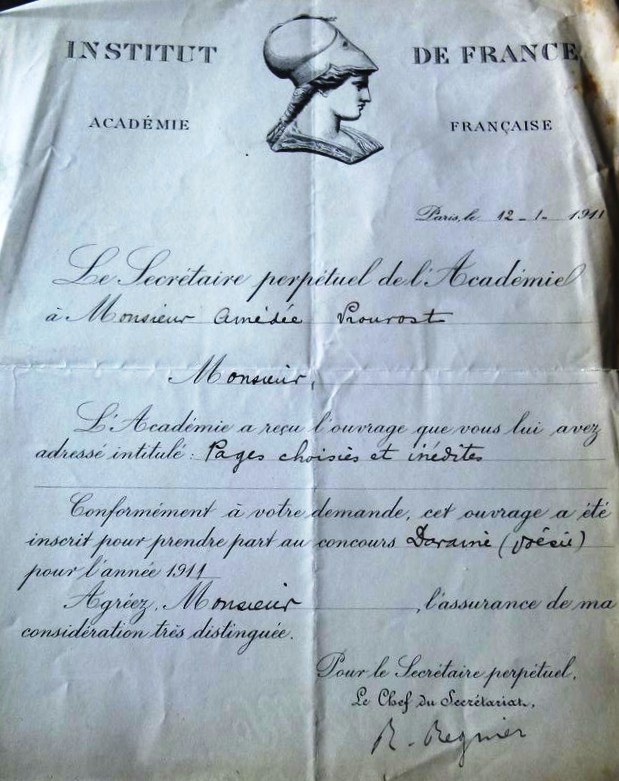 INSTITUT DE FRANCE
ACADÉMIE FRANÇAISE
Paris, le 12 - 1 - 1911
Le Secrétaire perpétuel de l'Académie
à Monsieur Amédée Prouvost
Monsieur,
L'Académie a reçu l'ouvrage que vous lui avez
adressé intitulé : Pages choisies et inédites
Conformément à votre demande, cet ouvrage a été
inscrit pour prendre part au concours Davaine (Poésie)
pour l'année 1911
Agréez, Monsieur, l'assurance de ma
considération très distinguée.
Pour le Secrétaire perpétuel,
Le Chef du Secrétariat,
R. Regnier